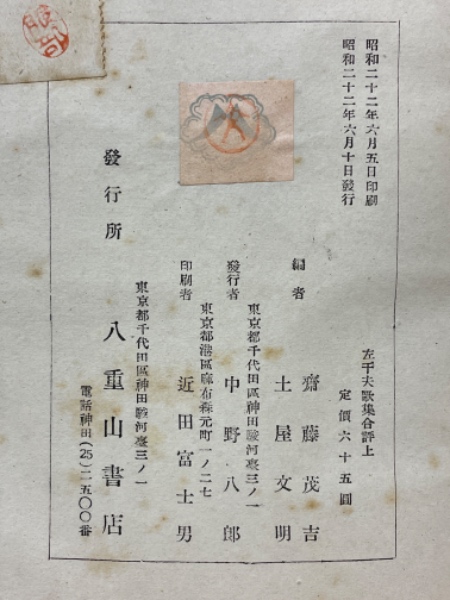 昭和二十二年六月五日印刷
昭和二十二年六月十日發行
左千夫歌集合評上
定價六十五圓
編者
齋藤茂吉
土屋文明
東京都千代田區神田駿河臺三ノ一
發行者
中野八郎
東京都港區麻布森元町一ノ二七
印刷者
近田富士男
東京都千代田區神田駿河臺三ノ一
發行所
八重山書店
電話神田(25)二五〇〇番
服部